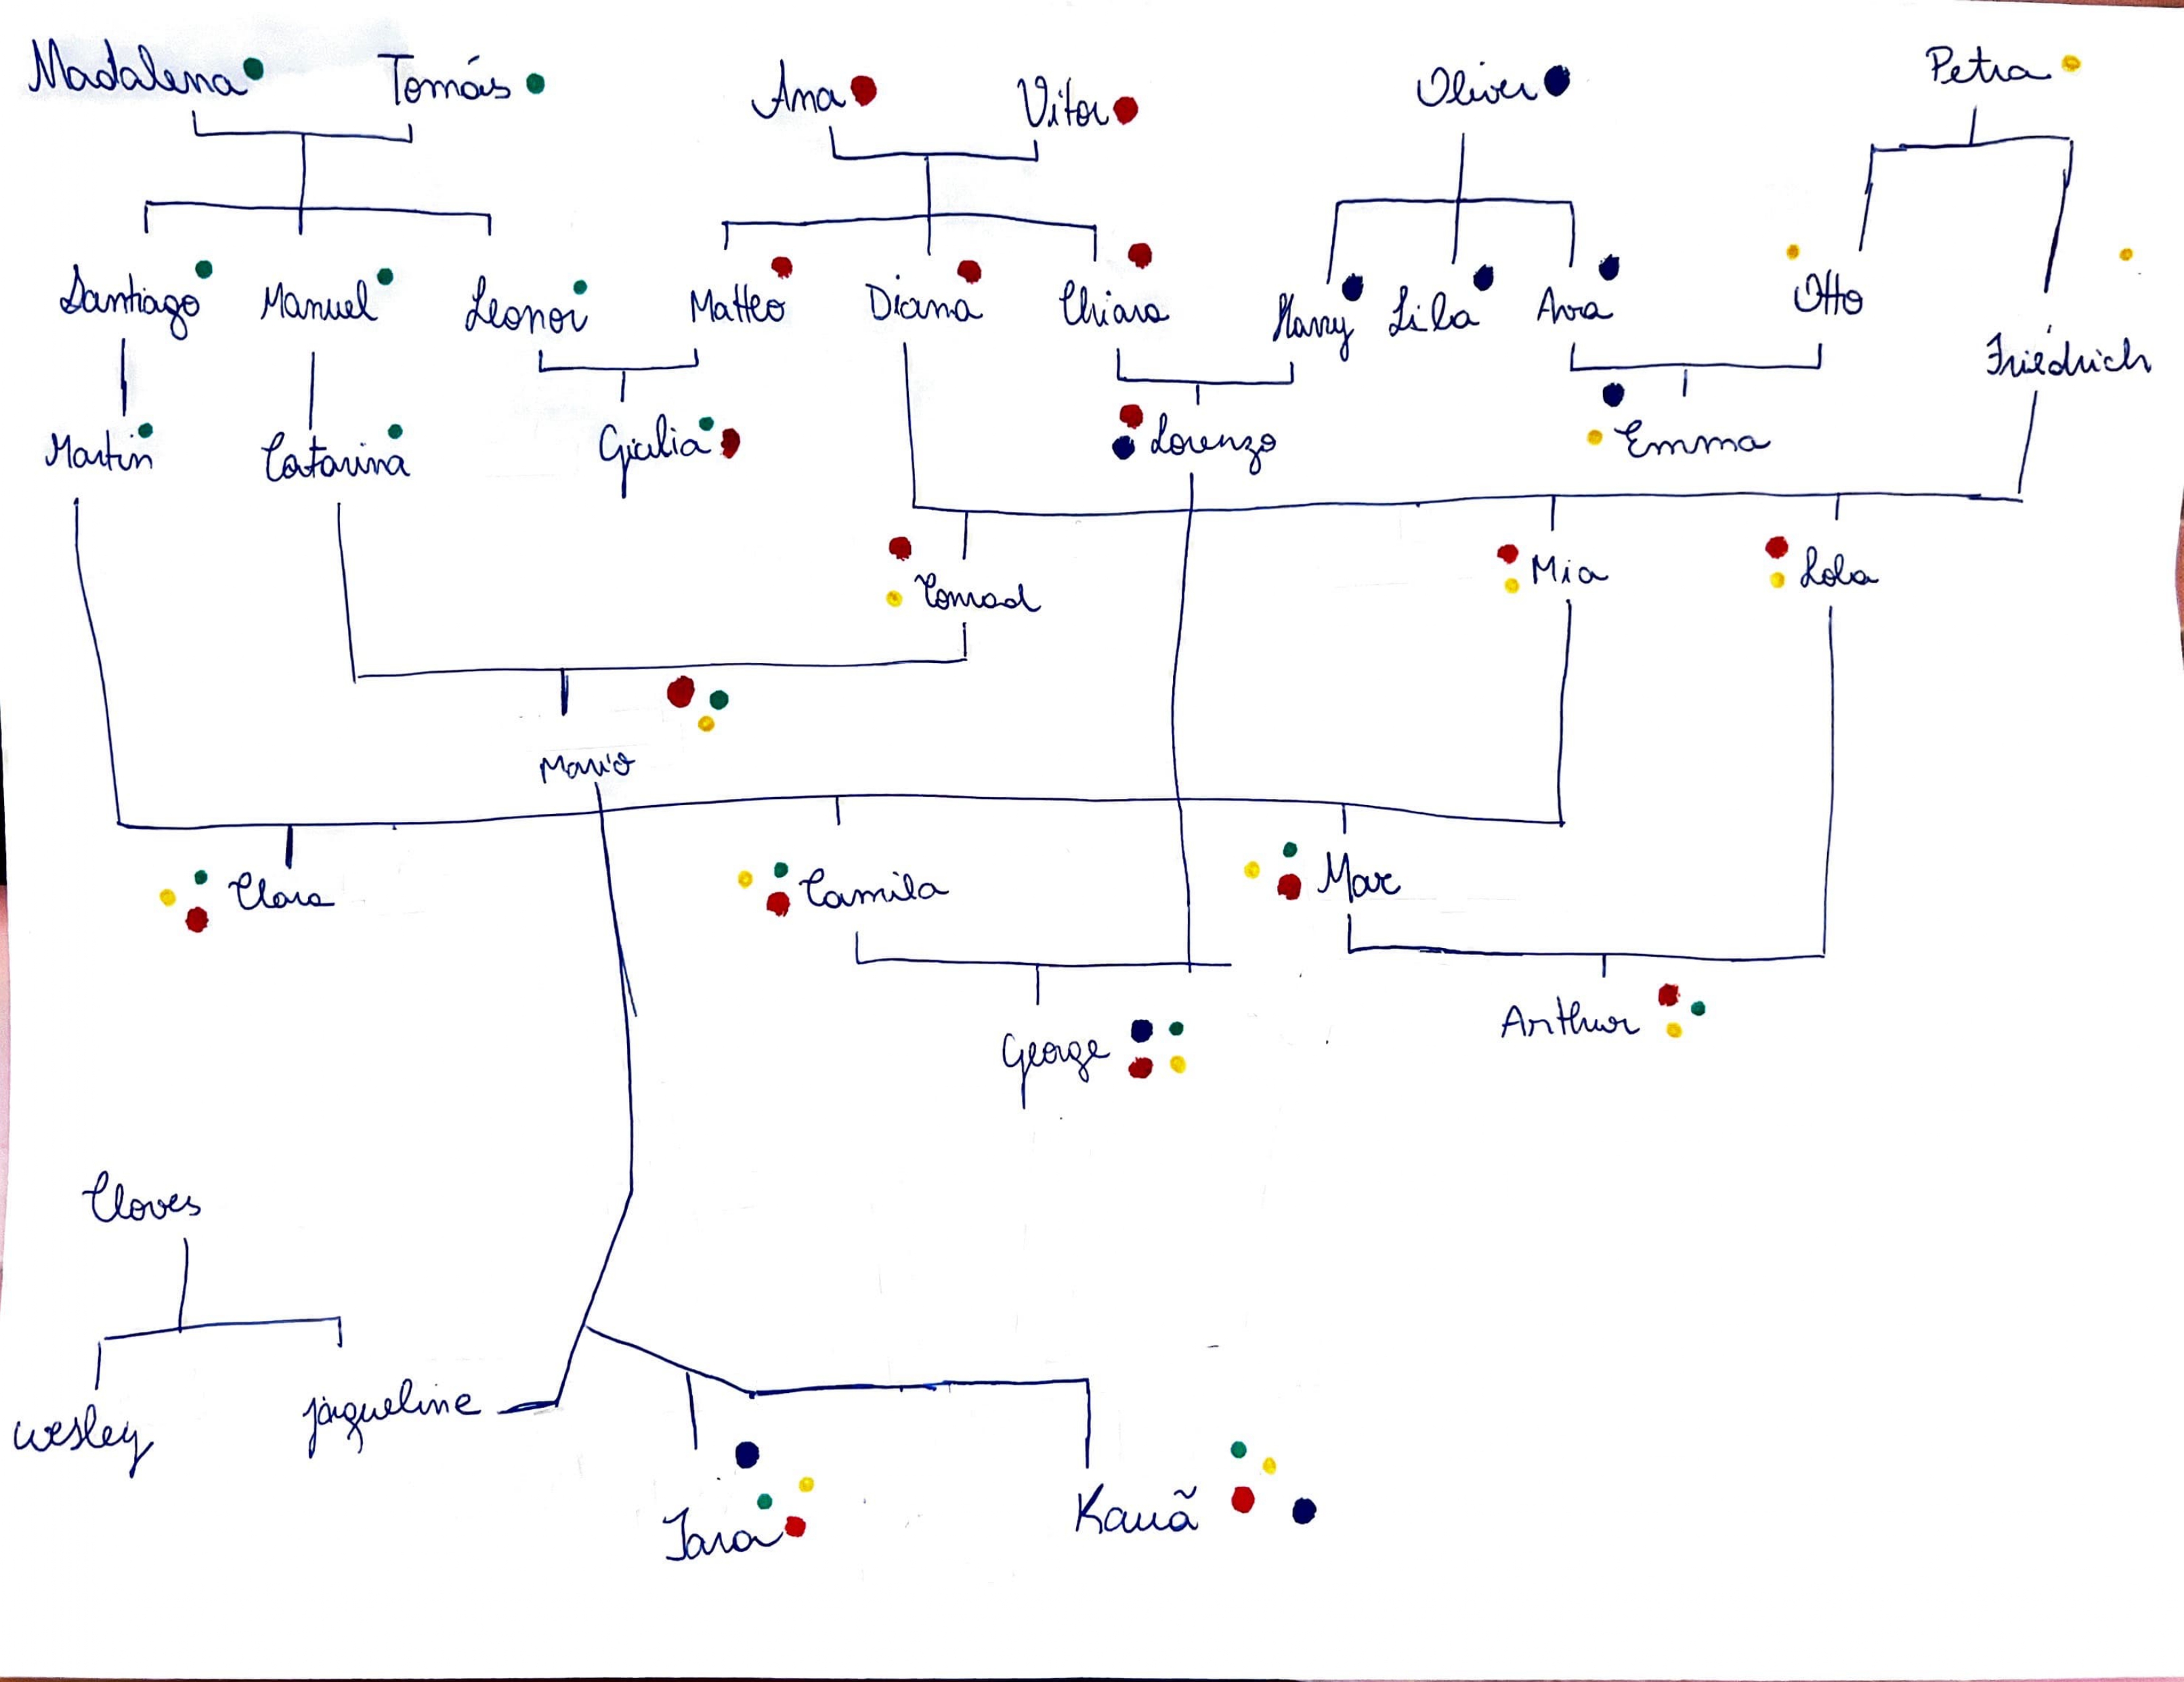 Madalena Tomás Ana Vitor Oliver Petra
Santiago Manuel Leonor Matteo Diana Chiara Harry Lila Ava Otto
Friedrich
Martin Catarina Giulia Lorenzo Emma
Conrad Mia Lola
Mario
Clara Camila Max
George Arthur
Cloves
Wesley jaqueline
Iara Kauã